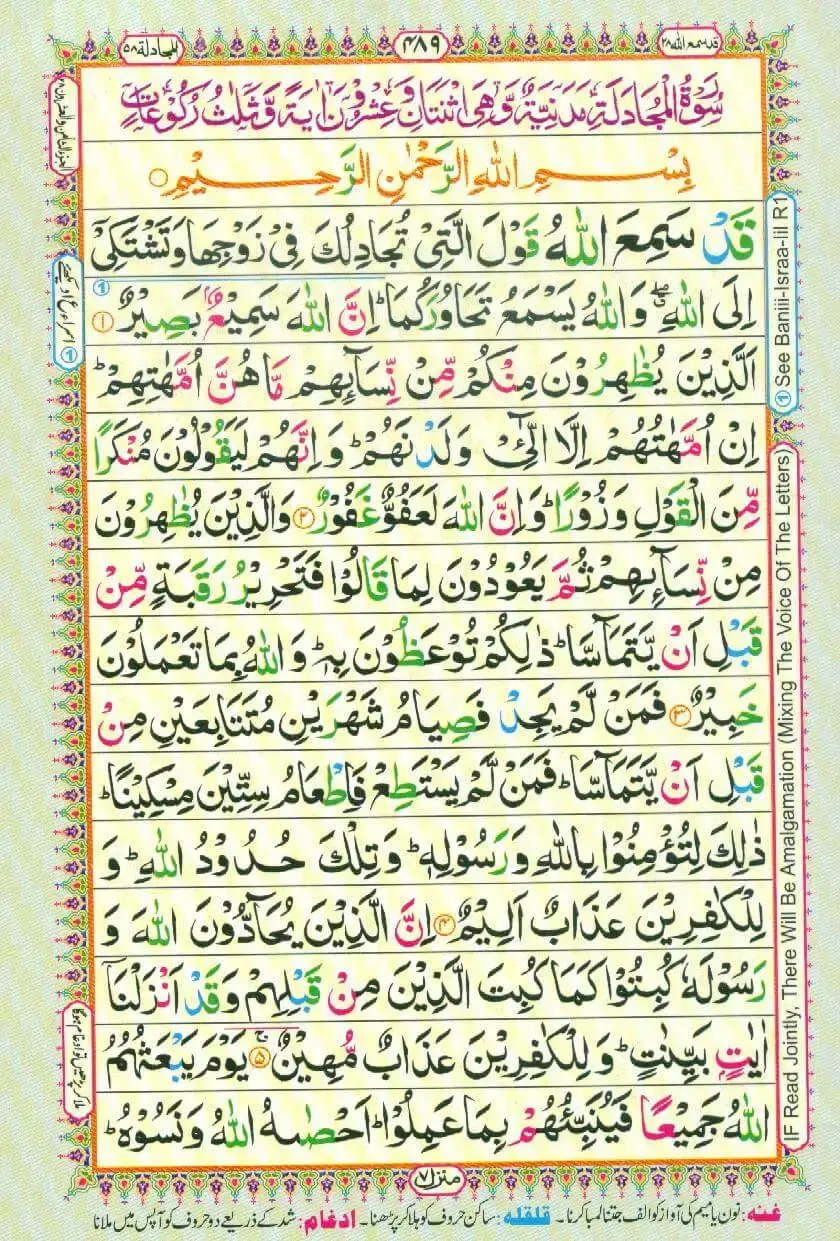 قد سمع الله ٢٨
٤٨٩
المجادلة ٥٨
سُوْرَةُ الْمُجَادَلَةِ مَدَنِيَّةٌ وَّهِىَ اثْنَتَانِ وَعِشْرُوْنَ اٰيَةً وَّثَلٰثُ رُكُوْعَاتٍ
بِسْمِ اللّٰهِ الرَّحْمٰنِ الرَّحِيْمِ ○
قَدْ سَمِعَ اللّٰهُ قَوْلَ الَّتِىْ تُجَادِلُكَ فِىْ زَوْجِهَا وَتَشْتَكِىْۤ
اِلَى اللّٰهِ ۖ وَاللّٰهُ يَسْمَعُ تَحَاوُرَكُمَا ؕ اِنَّ اللّٰهَ سَمِيْعٌۢ بَصِيْرٌ ①
اَلَّذِيْنَ يُظٰهِرُوْنَ مِنْكُمْ مِّنْ نِّسَآئِهِمْ مَّا هُنَّ اُمَّهٰتِهِمْ ؕ
اِنْ اُمَّهٰتُهُمْ اِلَّا الّٰٓـئِْ وَلَدْنَهُمْ ؕ وَاِنَّهُمْ لَيَقُوْلُوْنَ مُنْكَرًا
مِّنَ الْقَوْلِ وَزُوْرًا ؕ وَاِنَّ اللّٰهَ لَعَفُوٌّ غَفُوْرٌ ② وَالَّذِيْنَ يُظٰهِرُوْنَ
مِنْ نِّسَآئِهِمْ ثُمَّ يَعُوْدُوْنَ لِمَا قَالُوْا فَتَحْرِيْرُ رَقَبَةٍ مِّنْ
قَبْلِ اَنْ يَّتَمَآسَّا ؕ ذٰلِكُمْ تُوْعَظُوْنَ بِهٖ ؕ وَاللّٰهُ بِمَا تَعْمَلُوْنَ
خَبِيْرٌ ③ فَمَنْ لَّمْ يَجِدْ فَصِيَامُ شَهْرَيْنِ مُتَتَابِعَيْنِ مِنْ
قَبْلِ اَنْ يَّتَمَآسَّا ؕ فَمَنْ لَّمْ يَسْتَطِعْ فَاِطْعَامُ سِتِّيْنَ مِسْكِيْنًا ؕ
ذٰلِكَ لِتُؤْمِنُوْا بِاللّٰهِ وَرَسُوْلِهٖ ؕ وَتِلْكَ حُدُوْدُ اللّٰهِ ؕ وَ
لِلْكٰفِرِيْنَ عَذَابٌ اَلِيْمٌ ④ اِنَّ الَّذِيْنَ يُحَآدُّوْنَ اللّٰهَ وَ
رَسُوْلَهٗ كُبِتُوْا كَمَا كُبِتَ الَّذِيْنَ مِنْ قَبْلِهِمْ وَقَدْ اَنْزَلْنَاۤ
اٰيٰتٍۭ بَيِّنٰتٍ ؕ وَلِلْكٰفِرِيْنَ عَذَابٌ مُّهِيْنٌ ۚ ⑤ يَوْمَ يَبْعَثُهُمُ
اللّٰهُ جَمِيْعًا فَيُنَبِّئُهُمْ بِمَا عَمِلُوْا ؕ اَحْصٰىهُ اللّٰهُ وَنَسُوْهُ ؕ
منزل ٧
غنه: نون یا میم کی آواز کو الف جتنا لمبا کرنا۔ قلقله: ساکن حروف کو ہلا کر پڑھنا۔ ادغام: شد کے ذریعے دو حروف کو آپس میں ملانا
① See Baniii-Israa-Iil R1
IF Read Jointly, There Will Be Amalgamation (Mixing The Voice Of The Letters)